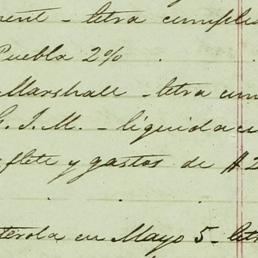 ment - letra cumplid
Puebla 2%
Marshall - letra cum
G. I. M. - liquidaci
flete y gastos de #2
terola en Mayo 5 - letr